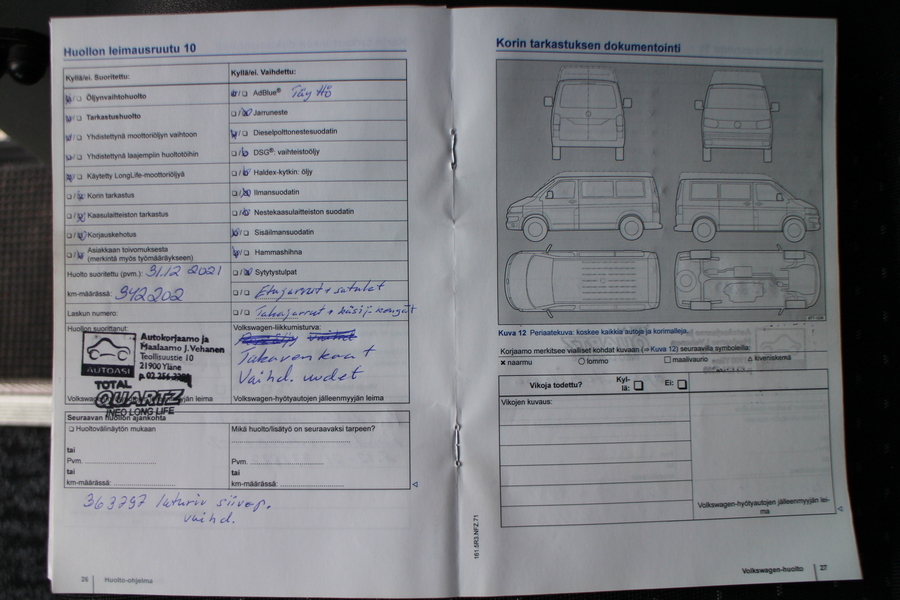 Huollon leimausruutu 10
Kyllä/ei. Suoritettu:
Öljynvaihtohuolto
Tarkastushuolto
Yhdistettynä moottoriöljyn vaihtoon
Yhdistettynä laajempiin huoltotöihin
Käytetty LongLife-moottoriöljyä
Korin tarkastus
Kaasulaitteiston tarkastus
Korjauskehotus
Asiakkaan toivomuksesta
(merkintä myös työmääräykseen)
Huolto suoritettu (pvm.): 31.12 2021
km-määrässä: 342202
Laskun numero:
Huollon suorittanut:
AUTOASI
Autokorjaamo ja
Maalaamo J.Vehanen
Teollisuustie 10
21900 Yläne
TOTAL
QUARTZ
INEO LONG LIFE
Kyllä/ei. Vaihdettu:
AdBlue® Täyttö
Jarruneste
Dieselpolttonestesuodatin
DSG®: vaihteistoöljy
Haldex-kytkin: öljy
Ilmansuodatin
Nestekaasulaitteiston suodatin
Sisäilmansuodatin
Hammashihna
Sytytystulpat
Etujarrut + satulat
Takajarrut + käsij.
Volkswagen-liikkumisturva:
Vaihd. uudet
Volkswagen-hyötyautojen jälleenmyyjän leima
Seuraavan huollon ajankohta
Huoltovälinäytön mukaan
tai
Pvm.
tai
km-määrässä:
Mikä huolto/lisätyö on seuraavaksi tarpeen?
Pvm.
tai
km-määrässä:
363797 laturin
vaihd.
26 Huolto-ohjelma
Korin tarkastuksen dokumentointi
Kuva 12 Periaatekuva: koskee kaikkia autoja ja korimalleja.
Korjaamo merkitsee vialliset kohdat kuvaan (⇒ Kuva 12) seuraavilla symboleilla:
x naarmu ○ lommo □ maalivaurio △ kiveniskemä
Vikoja todettu? Kyl-
lä: Ei:
Vikojen kuvaus:
Volkswagen-hyötyautojen jälleenmyyjän lei-
ma
161.5R3.NFZ.71
Volkswagen-huolto 27